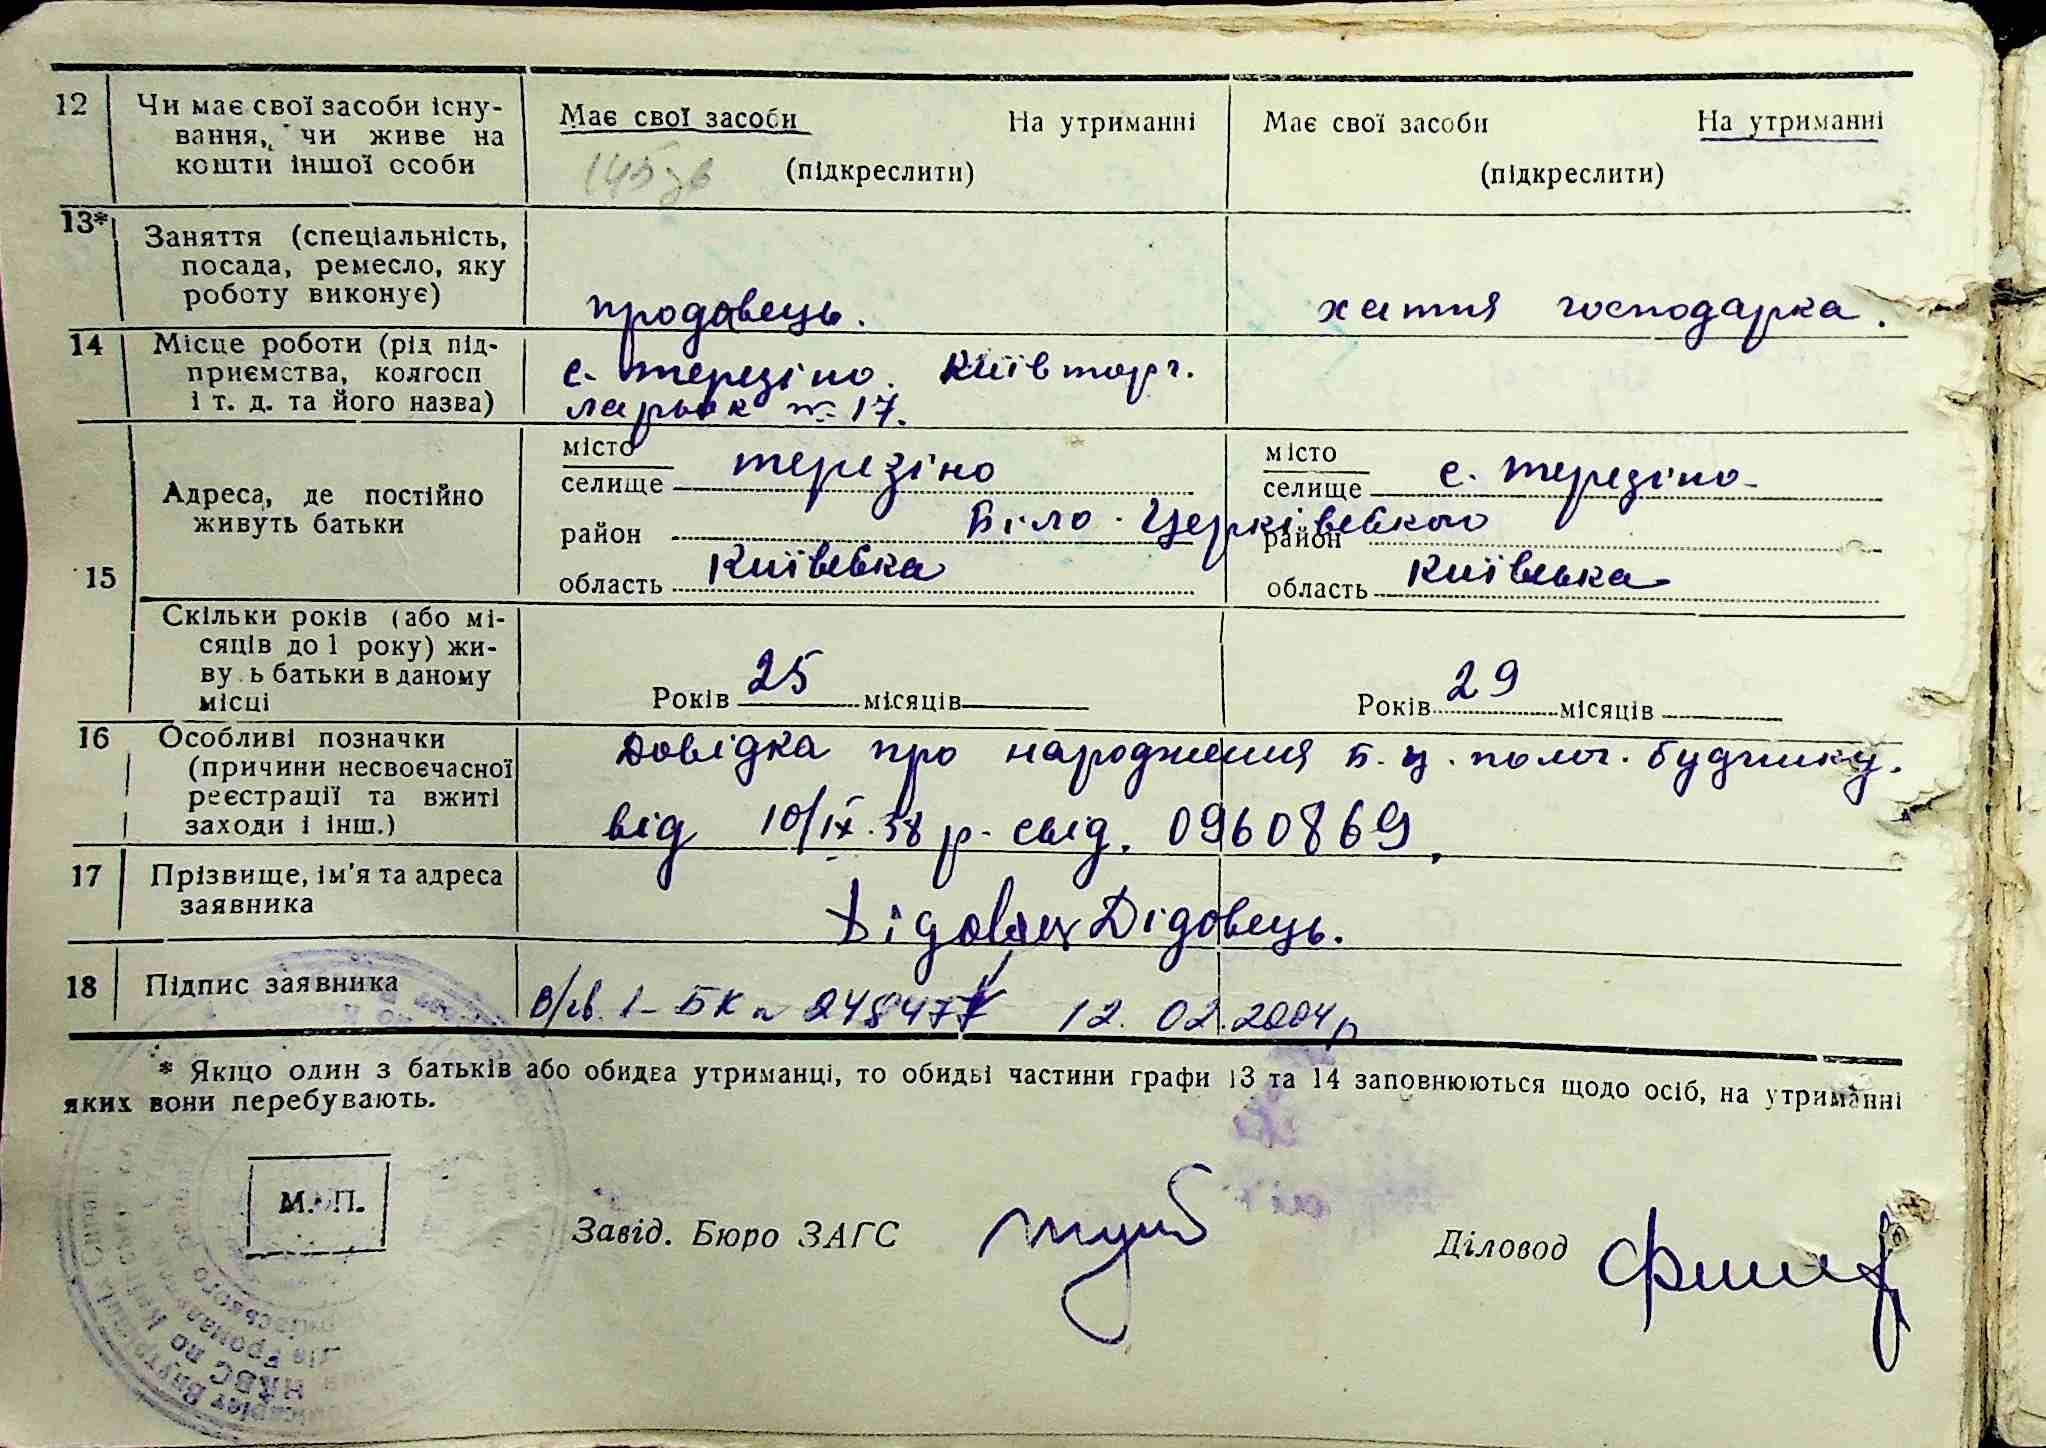 12 Чи має свої засоби існу-
вання, чи живе на
кошти іншої особи
Має свої засоби На утриманні
(підкреслити)
Має свої засоби На утриманні
(підкреслити)
13* Заняття (спеціальність,
посада, ремесло, яку
роботу виконує)
продавець.
хатня господарка.
14 Місце роботи (рід під-
приємства, колгосп
і т. д. та його назва)
с. терезіно. Київторг.
ларьок № 17.
15 Адреса, де постійно
живуть батьки
місто
селище терезіно
район Біло-Церківського
область Київська
місто
селище с. терезіно
район
область Київська
Скільки років (або мі-
сяців до 1 року) жи-
ву ь батьки в даному
місці
Років 25 місяців
Років 29 місяців
16 Особливі позначки
(причини несвоєчасної
реєстрації та вжиті
заходи і інш.)
Довідка про народження Б.Ц. полог. будинку.
від 10/IX.58 р. свід. 0960869.
17 Прізвище, ім'я та адреса
заявника
Дідовець.
18 Підпис заявника
12.02.2004р
* Якщо один з батьків або обидва утриманці, то обидві частини графи 13 та 14 заповнюються щодо осіб, на утриманні
яких вони перебувають.
М. П.
Завід. Бюро ЗАГС
Діловод